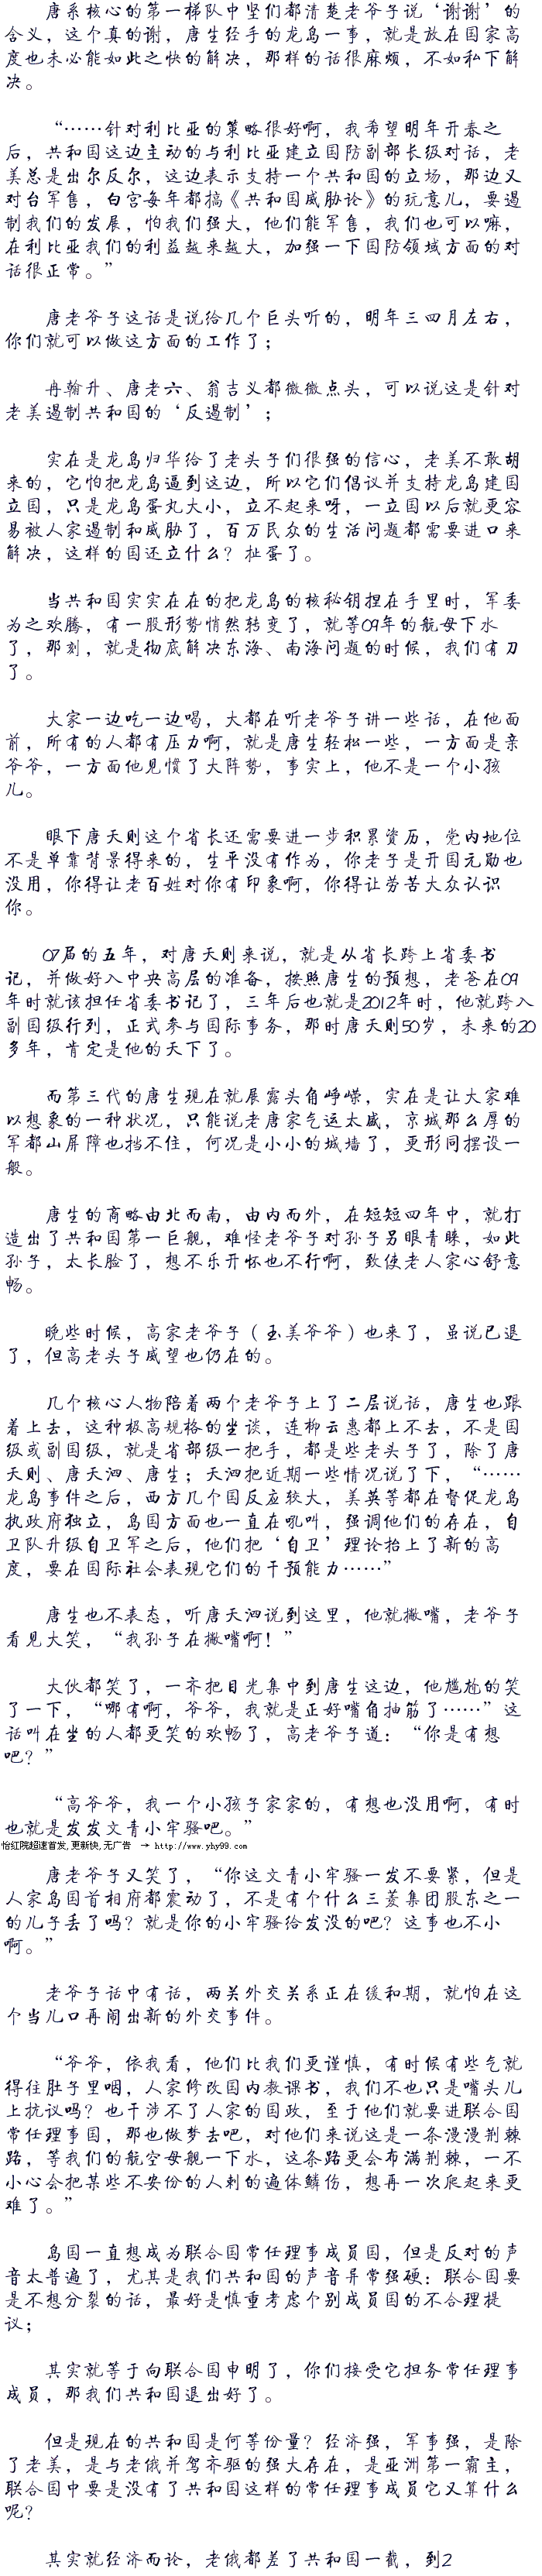 唐系核心的第一梯队中坚们都清楚老爷子说‘谢谢’的
含义，这个真的谢，唐生经手的龙岛一事，就是放在国家高
度也未必能如此之快的解决，那样的话很麻烦，不如私下解
决。
“……针对利比亚的策略很好啊，我希望明年开春之
后，共和国这边主动的与利比亚建立国防副部长级对话，老
美总是出尔反尔，这边表示支持一个共和国的立场，那边又
对台军售，白宫每年都搞《共和国威胁论》的玩意儿，要遏
制我们的发展，怕我们强大，他们能军售，我们也可以嘛，
在利比亚我们的利益越来越大，加强一下国防领域方面的对
话很正常。”
唐老爷子这话是说给几个巨头听的，明年三四月左右，
你们就可以做这方面的工作了；
冉翰升、唐老六、翁吉义都微微点头，可以说这是针对
老美遏制共和国的‘反遏制’；
实在是龙岛归华给了老头子们很强的信心，老美不敢胡
来的，它怕把龙岛逼到这边，所以它们倡议并支持龙岛建国
立国，只是龙岛蛋丸大小，立不起来呀，一立国以后就更容
易被人家遏制和威胁了，百万民众的生活问题都需要进口来
解决，这样的国还立什么？扯蛋了。
当共和国实实在在的把龙岛的核秘钥捏在手里时，军委
为之欢腾，有一股形势悄然转变了，就等09年的航母下水
了，那刻，就是彻底解决东海、南海问题的时候，我们有刀
了。
大家一边吃一边喝，大都在听老爷子讲一些话，在他面
前，所有的人都有压力啊，就是唐生轻松一些，一方面是亲
爷爷，一方面他见惯了大阵势，事实上，他不是一个小孩
儿。
眼下唐天则这个省长还需要进一步积累资历，党内地位
不是单靠背景得来的，生平没有作为，你老子是开国元勋也
没用，你得让老百姓对你有印象啊，你得让劳苦大众认识
你。
07届的五年，对唐天则来说，就是从省长跨上省委书
记，并做好入中央高层的准备，按照唐生的预想，老爸在09
年时就该担任省委书记了，三年后也就是2012年时，他就跨入
副国级行列，正式参与国际事务，那时唐天则50岁，未来的20
多年，肯定是他的天下了。
而第三代的唐生现在就展露头角峥嵘，实在是让大家难
以想象的一种状况，只能说老唐家气运太盛，京城那么厚的
军都山屏障也挡不住，何况是小小的城墙了，更形同摆设一
般。
唐生的商略由北而南，由内而外，在短短四年中，就打
造出了共和国第一巨舰，难怪老爷子对孙子另眼青睐，如此
孙子，太长脸了，想不乐开怀也不行啊，致使老人家心舒意
畅。
晚些时候，高家老爷子（玉美爷爷）也来了，虽说已退
了，但高老头子威望也仍在的。
几个核心人物陪着两个老爷子上了二层说话，唐生也跟
着上去，这种极高规格的坐谈，连柳云惠都上不去，不是国
级或副国级，就是省部级一把手，都是些老头子了，除了唐
天则、唐天泗、唐生；天泗把近期一些情况说了下，“……
龙岛事件之后，西方几个国反应较大，美英等都在督促龙岛
执政府独立，岛国方面也一直在吼叫，强调他们的存在，自
卫队升级自卫军之后，他们把‘自卫’理论抬上了新的高
度，要在国际社会表现它们的干预能力……”
唐生也不表态，听唐天泗说到这里，他就撇嘴，老爷子
看见大笑，“我孙子在撇嘴啊！”
大伙都笑了，一齐把目光集中到唐生这边，他尴尬的笑
了一下，“哪有啊，爷爷，我就是正好嘴角抽筋了……”这
话叫在坐的人都更笑的欢畅了，高老爷子道：“你是有想
吧？”
“高爷爷，我一个小孩子家家的，有想也没用啊，有时
也就是发发文青小牢骚吧。”
怡红院超速首发,更新快,无广告 → http://www.yhy99.com
唐老爷子又笑了，“你这文青小牢骚一发不要紧，但是
人家岛国首相府都震动了，不是有个什么三菱集团股东之一
的儿子丢了吗？就是你的小牢骚给发没的吧？这事也不小
啊。”
老爷子话中有话，两关外交关系正在缓和期，就怕在这
个当儿口再闹出新的外交事件。
“爷爷，依我看，他们比我们更谨慎，有时候有些气就
得往肚子里咽，人家修改国内教课书，我们不也只是嘴头儿
上抗议吗？也干涉不了人家的国政，至于他们就要进联合国
常任理事国，那也做梦去吧，对他们来说这是一条漫漫荆棘
路，等我们的航空母舰一下水，这条路更会布满荆棘，一不
小心会把某些不安份的人刺的遍体鳞伤，想再一次爬起来更
难了。”
岛国一直想成为联合国常任理事成员国，但是反对的声
音太普遍了，尤其是我们共和国的声音异常强硬：联合国要
是不想分裂的话，最好是慎重考虑个别成员国的不合理提
议；
其实就等于向联合国申明了，你们接受它担务常任理事
成员，那我们共和国退出好了。
但是现在的共和国是何等份量？经济强，军事强，是除
了老美，是与老俄并驾齐驱的强大存在，是亚洲第一霸主，
联合国中要是没有了共和国这样的常任理事成员它又算什么
呢？
其实就经济而论，老俄都差了共和国一截，到2